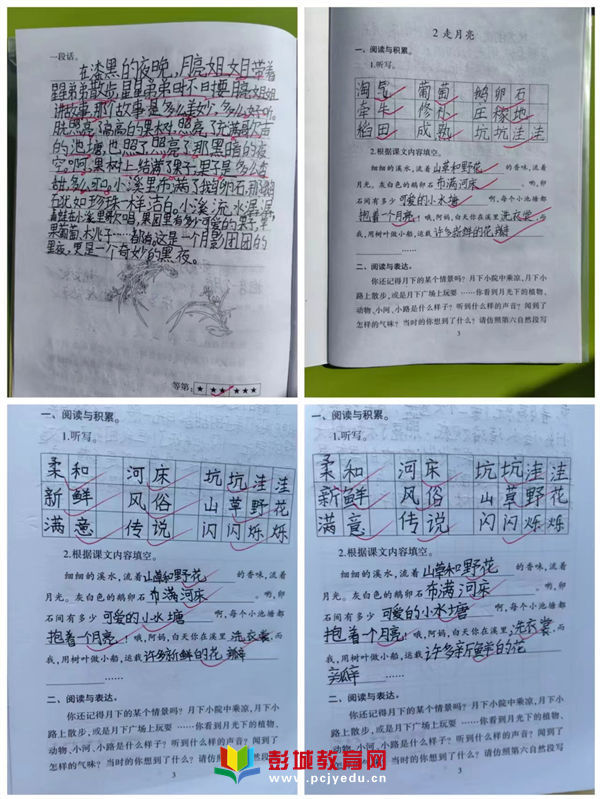 一段话。
在漆黑的夜晚，月亮姐姐带着
星星弟弟散步，星星弟弟时不日要月亮姐姐
讲故事，那故事是多么美妙，多么好听。
照亮了高高的果树，照亮了充满歌声
的池塘，也照了照亮了那黑暗的夜
空。啊，果树上结满了果子，里子是多么连
甜，多么可。小溪里布满了鹅卵石，那鹅卵
石犹如珍珠一样洁白。小溪流水潺潺，
果葡萄、木兆子……都治这是一个月影团团的
里夜，更是一个奇妙的黑夜。
等第：★★★★★★
2 走月亮
一、阅读与积累。
1.听写。
淘气 葡萄 鹅卵石
牵牛 修补 庄稼地
稻田 成熟 坑坑洼洼
2.根据课文内容填空。
细细的溪水，流着山草和野花的香味，流着
月光。灰白色的鹅卵石布满河床。哟，卵
石间有多少可爱的小水塘啊，每个小水塘都
抱着一个月亮！哦，阿妈，白天你在溪里洗衣裳，而
我，用树叶做小船，运载许多新鲜的花瓣
二、阅读与表达。
你还记得月下的某个情景吗？月下小院中乘凉，月下小
路上散步，或是月下广场上玩耍……你看到月光下的植物、
动物、小河、小路是什么样子？听到什么样的声音？闻到了
怎样的气味？当时的你想到了什么？请仿照第六自然段写
3
一、阅读与积累。
1.听写。
柔和 河床 坑坑洼洼
新鲜 风俗 山草野花
满意 传说 闪闪烁烁
2.根据课文内容填空。
细细的溪水，流着山草和野花的香味，流着
月光。灰白色的鹅卵石布满河床。哟，卵
石间有多少可爱的小水塘啊，每个小池塘都
抱着一个月亮！哦，阿妈，白天你在溪里洗衣裳，而
我，用树叶做小船，运载许多新鲜的花瓣
二、阅读与表达。
你还记得月下的某个情景吗？月下小院中乘凉，月下小
路上散步，或是月下广场上玩耍……你看到月光下的植物、
动物、小河、小路是什么样子？听到什么样的声音？闻到了
怎样的气味？当时的你想到了什么？请仿照第六自然段写
3
一、阅读与积累。
1.听写。
柔和 河床 坑坑洼洼
新鲜 风俗 山草野花
满意 传说 闪闪烁烁
2.根据课文内容填空。
细细的溪水，流着山草和野花的香味，流着
月光。灰白色的鹅卵石布满河床。哟，卵
石间有多少可爱的小水塘啊，每个小池塘都
抱着一个月亮！哦，阿妈，白天你在溪里洗衣裳，而
我，用树叶做小船，运载许多新鲜的花
二、阅读与表达。
你还记得月下的某个情景吗？月下小院中乘凉，月下小
路上散步，或是月下广场上玩耍……你看到月光下的植物、
动物、小河、小路是什么样子？听到什么样的声音？闻到了
怎样的气味？当时的你想到了什么？请仿照第六自然段写
3
彭城教育网
www.pcjyedu.cn